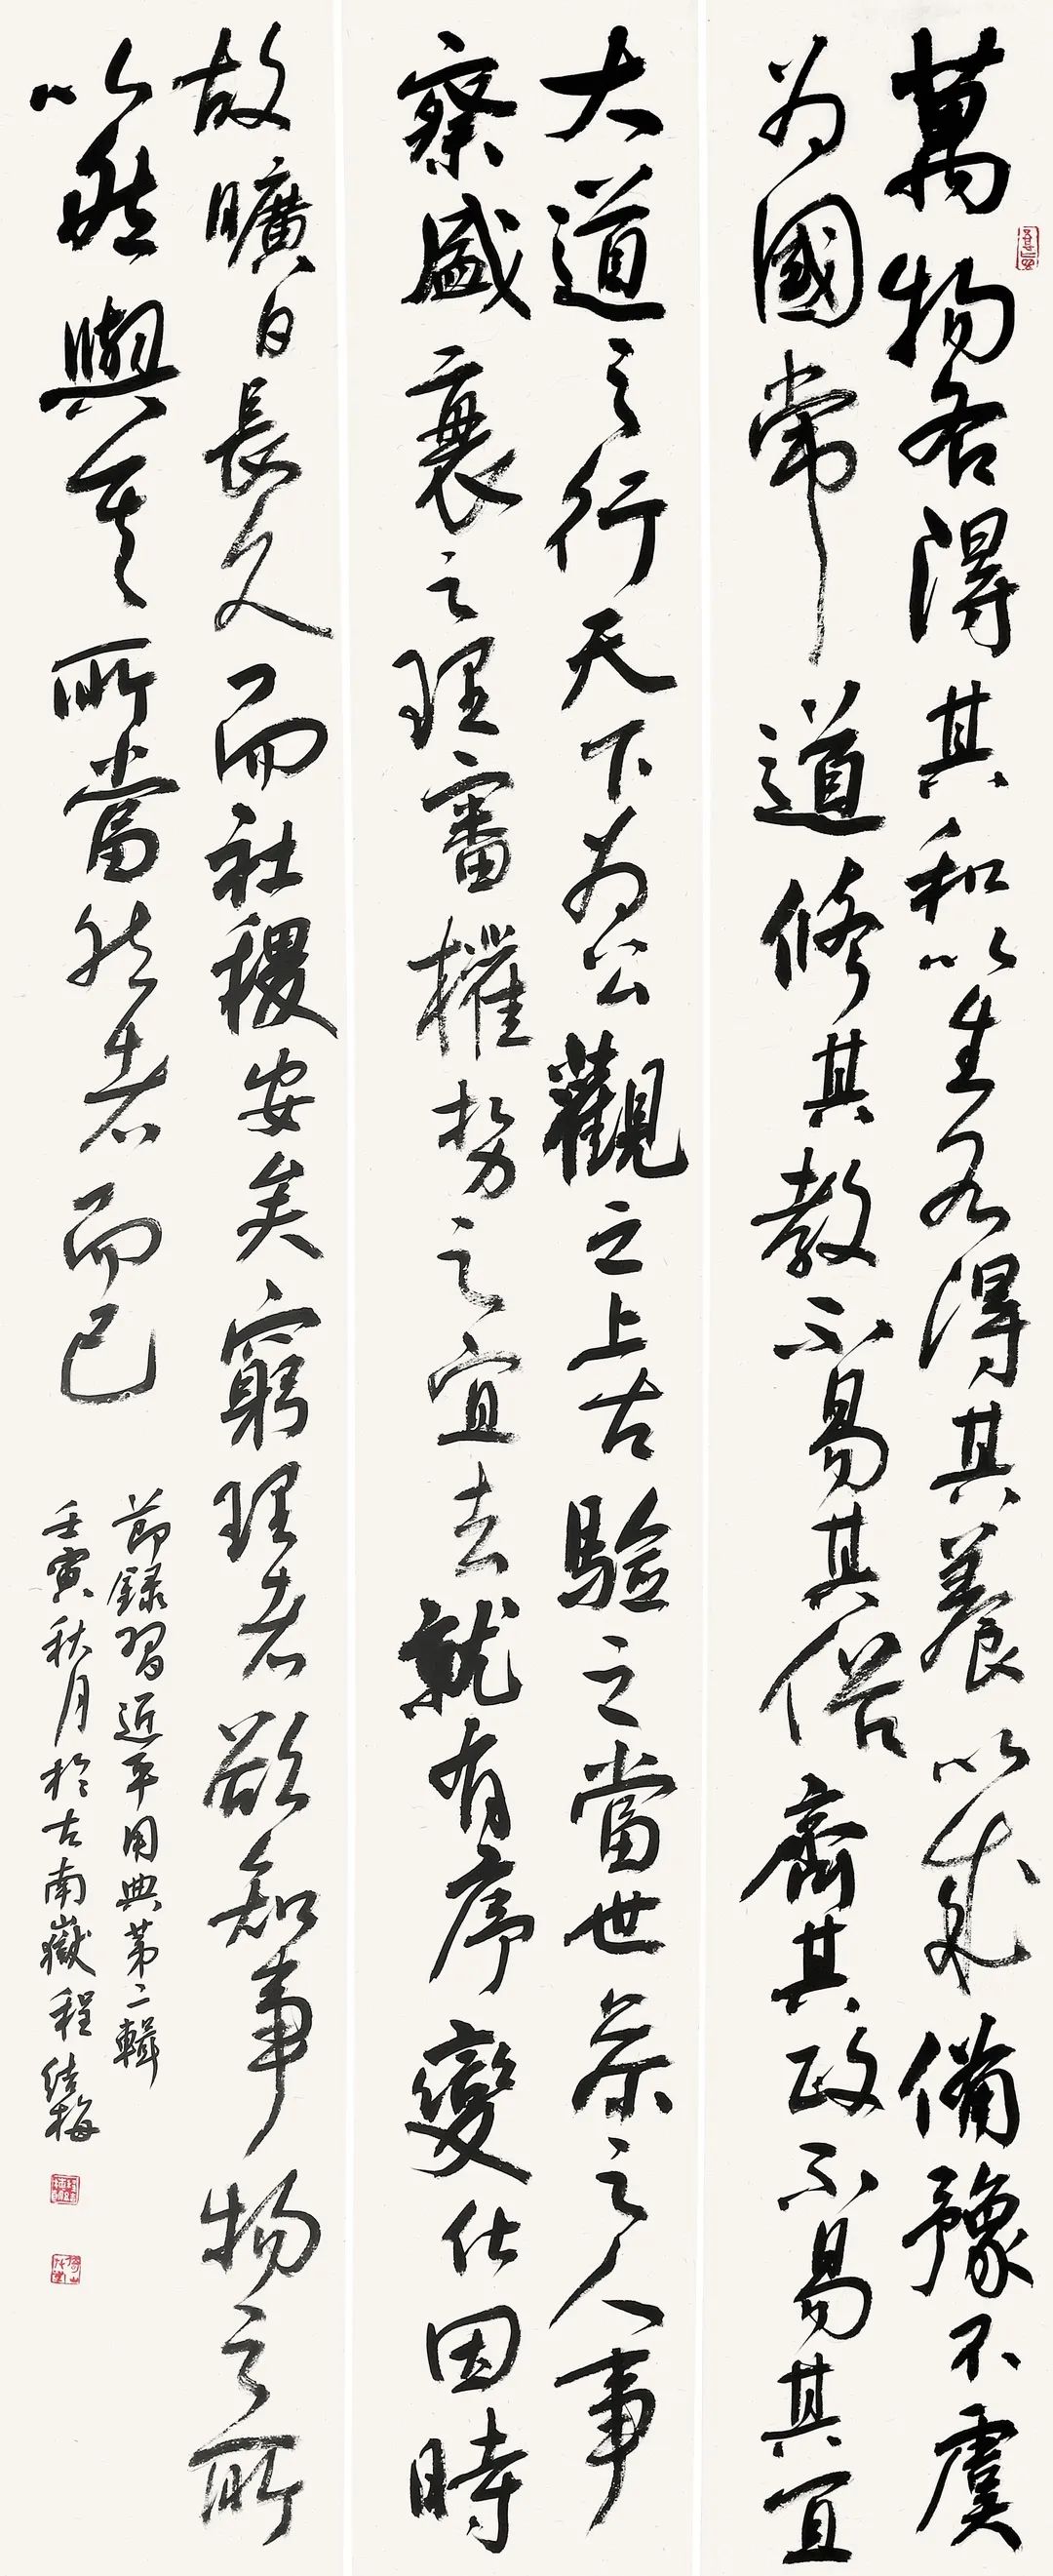 萬物各得其和以生各得其養以成備豫不虞
為國常道修其教不易其俗齊其政不易其宜
大道之行天下為公觀之上古驗之當世參之人事
察盛衰之理審權勢之宜去就有序變化因時
故曠日長久而社稷安矣窮理者欲知事物之所
以然與其所當然者而已
節錄習近平用典第二輯
壬寅秋月於古南嶽程結梅